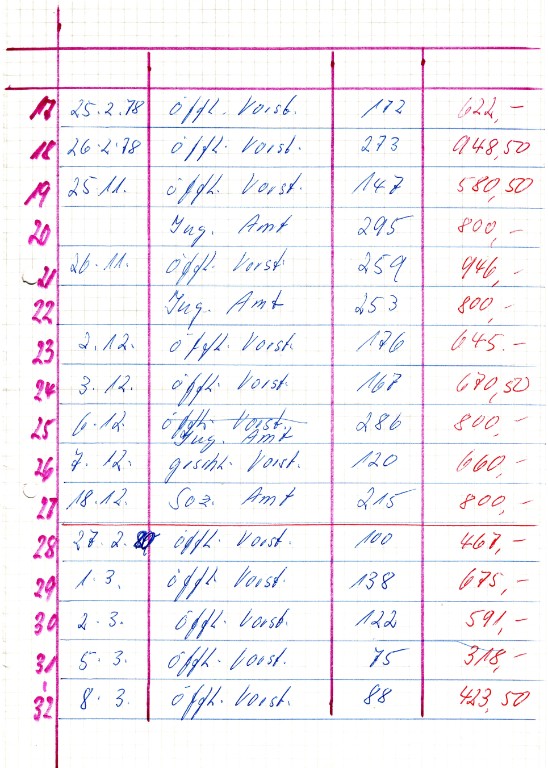 17 25.2.78 öfftl. Vorst. 172 622,-
18 26.2.78 öfftl. Vorst. 273 948,50
19 25.11. öfftl. Vorst. 147 580,50
20 Jug. Amt 295 800,-
21 26.11. öfftl. Vorst. 259 946,-
22 Jug. Amt 253 800,-
23 2.12. öfftl. Vorst. 176 645.-
24 3.12. öfftl. Vorst. 167 670,50
25 6.12. öfftl. Vorst. 286 800,-
Jug. Amt
26 7.12. geschl. Vorst. 120 660,-
27 18.12. Soz. Amt 215 800,-
28 27.2. öfftl. Vorst. 100 467,-
29 1.3. öfftl. Vorst. 138 675,-
30 2.3. öfftl. Vorst. 122 591,-
31 5.3. öfftl. Vorst. 75 318,-
32 8.3. öfftl. Vorst. 88 423,50